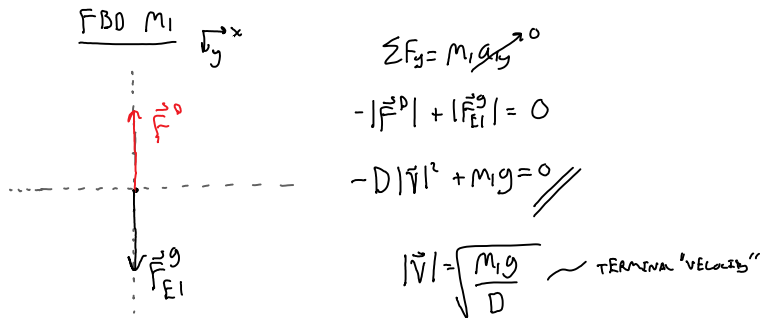 FBD M1
x
y
F⃗ᴰ
F⃗ᵍE1
ΣFy = M1 a1y 0
-|F⃗ᴰ| + |F⃗ᵍE1| = 0
-D|V⃗|² + M1g = 0
|V⃗| = √(M1g/D) TERMINAL "VELOCITY"